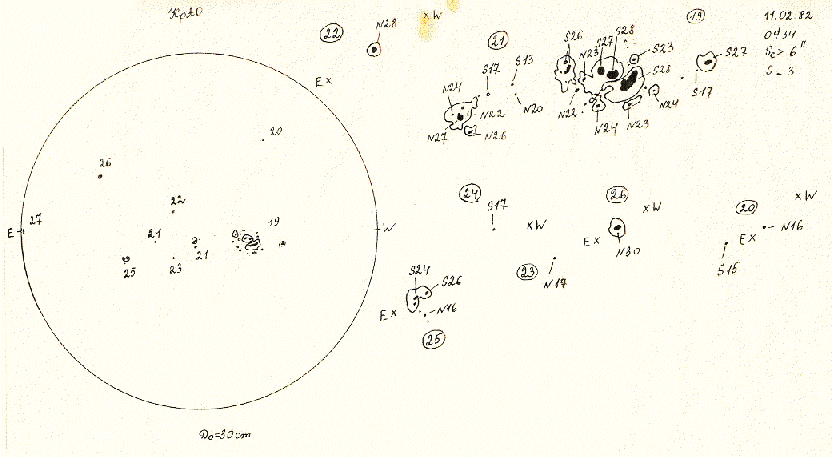 22
N28
x W
E x
21
S17
S13
N24
N22
N20
N27
N26
S26
N23
S27
S28
S23
S28
N22
N24
N23
N24
19
S27
S17
11.02.82
0434
S - 3
20
26
22
E
27
21
19
W
25
23
21
24
S17
x W
23
N17
26
x W
E x
N30
20
x W
E x
N16
S15
S24
S26
E x
N16
25
D₀=30 cm